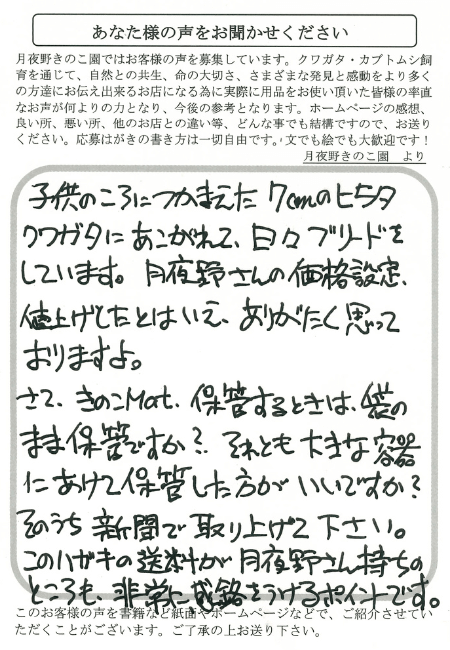 あなた様の声をお聞かせください
月夜野きのこ園ではお客様の声を募集しています。クワガタ・カブトムシ飼
育を通じて、自然との共生、命の大切さ、さまざまな発見と感動をより多く
の方達にお伝え出来るお店になる為に実際に用品をお使い頂いた皆様の率直
なお声が何よりの力となり、今後の参考となります。ホームページの感想、
良い所、悪い所、他のお店との違い等、どんな事でも結構ですので、お送り
ください。応募はがきの書き方は一切自由です。文でも絵でも大歓迎です！
月夜野きのこ園　より
子供のころにつかまえた 7cmのヒラタ
クワガタにあこがれて、日々ブリードを
しています。月夜野さんの価格設定、
値上げしたとはいえ、ありがたく思って
おりますよ。
さて、きのこMat、保管するときは、袋の
まま保管ですか？ それとも大きな容器
にあけて保管した方がいいですか？
そのうち新聞で取り上げて下さい。
このハガキの送料が月夜野さん持ちの
ところも、非常に感銘をうけるポイントです。
このお客様の声を書籍など紙面やホームページなどで、ご紹介させてい
ただくことがございます。ご了承の上お送り下さい。